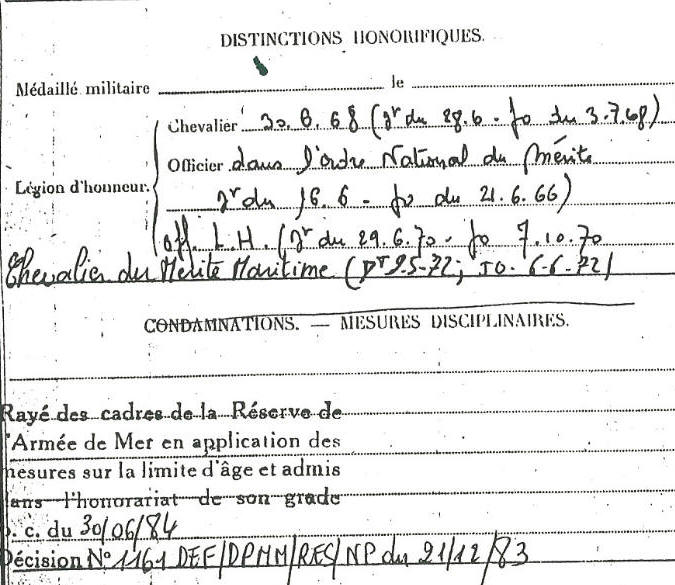 DISTINCTIONS HONORIFIQUES.
Médaillé militaire le
Chevalier 30.6.68 (Dr du 28.6 - Jo du 3.7.68)
Officier dans l'ordre National du Mérite
Légion d'honneur.
Dr du 16.6 - Jo du 21.6.66)
Off. L.H. (Dr du 29.6.70 - Jo 7.10.70
Chevalier du Mérite Maritime (DT 9.5-72; JO. 6-6-72)
CONDAMNATIONS. — MESURES DISCIPLINAIRES.
Rayé des cadres de la Réserve de
l'Armée de Mer en application des
mesures sur la limite d'âge et admis
dans l'honorariat de son grade
p. c. du 30/06/84
Décision N° 1161 DEF/DPMM/RES/NP du 21/12/83